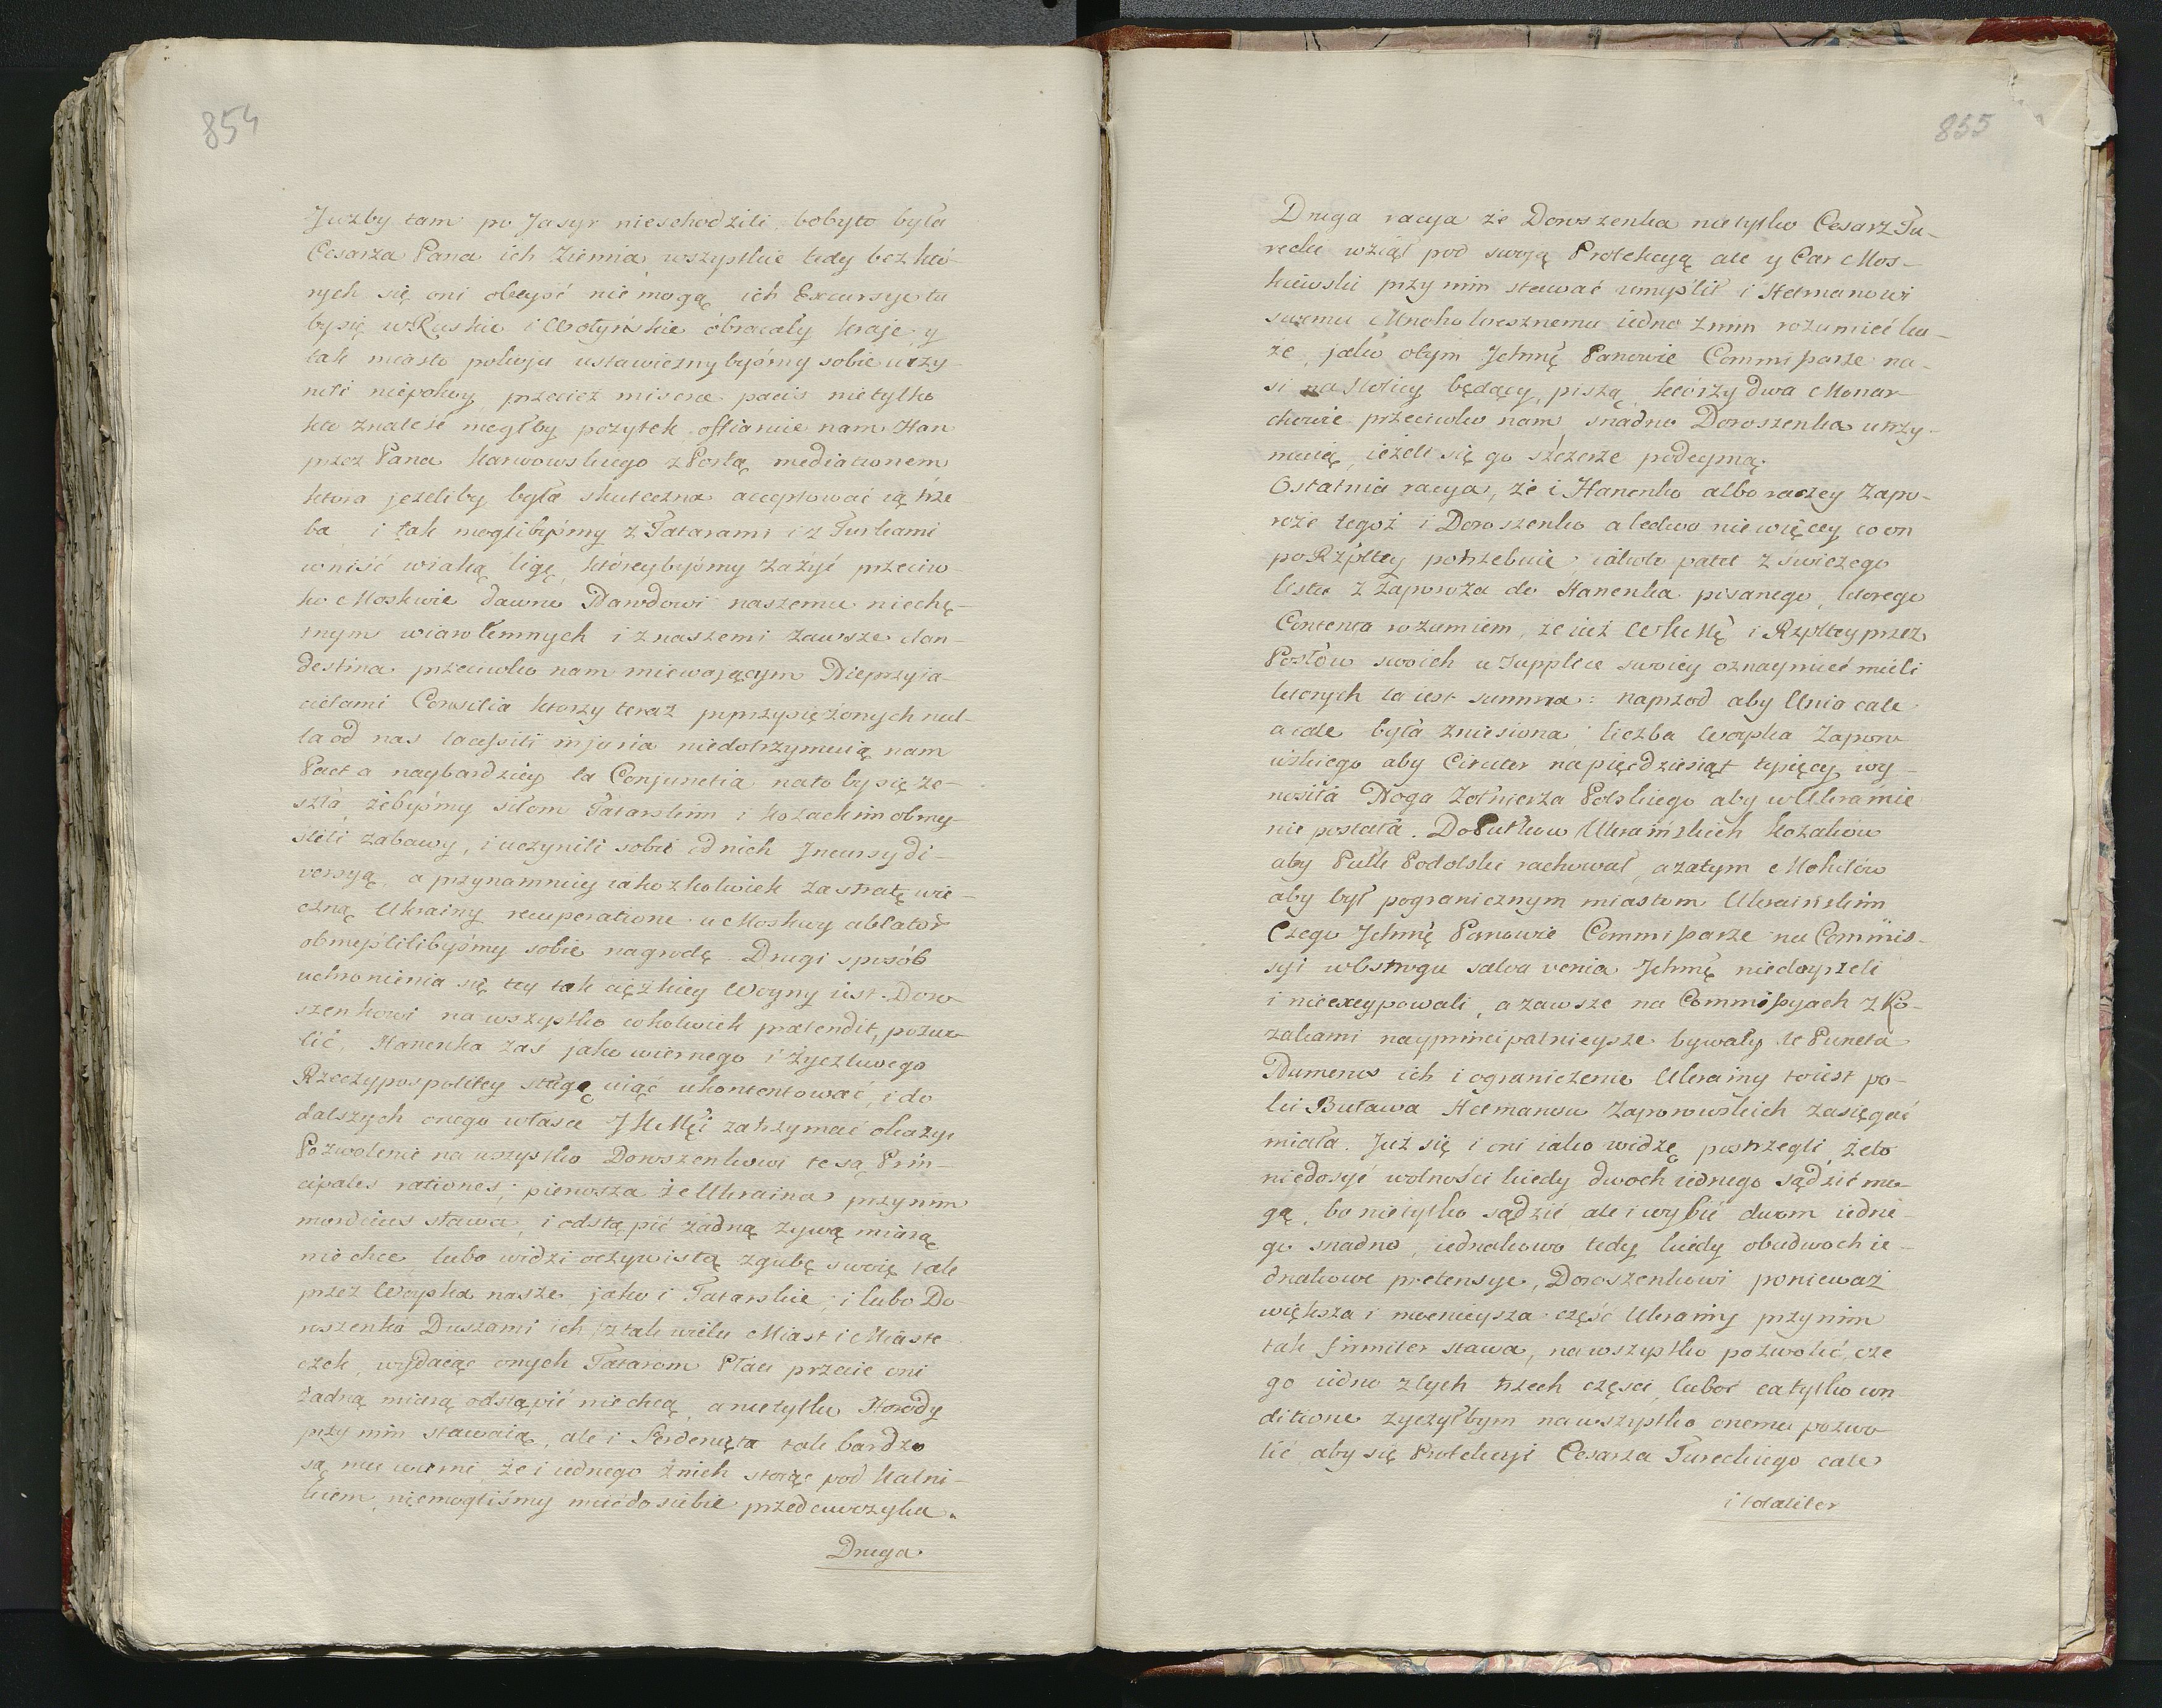 854
Juzby tam po Jasyr nieschodzili, bobyto była
Cesarza Pana ich Ziemia, wszystkie tedy bez któ-
rych się oni obeyść nie mogą ich Excursye tu
bysię w Ruskie i Wołyńskie obracały kraje y
tak miasto pokoju ustawiczny byśmy sobie uczy-
nili niepokoy, przecież misera pacis nietylko
kto znaleść mogłby pożytek offiaruie nam Han
przez Pana Karwowskiego z Portą mediationem
ktora jezeliby była skuteczna acceptować ią trze
ba i tak moglibyśmy z Tatarami i z Turkami
wniść wiaką ligę, któreybyśmy zażyć przeciw-
ko Moskwie dawno Narodowi naszemu niechę-
tnym wiarołomnych i znaszemi zawsze clan-
destina przeciwko nam miewającym Nieprzyia-
ciołami Consilia ktorzy teraz poprzysiężonych nul-
la od nas lacessiti injuria niedotrzymuią nam
Pact a naybardziey ta Conjunctia nato bysię ze-
szła, żebyśmy siłom Tatarskim i Kozackim obmy-
slili zabawy, i uczynili sobie od nich Jncursy di-
versyą, a przynamniey iakozkolwiek za stratę wie-
czną Ukrainy recuperatione u Moskwy ablator
obmyślilibyśmy sobie nagrodę. Drugi sposób
uchronienia się tey tak cięźkiey Woyny iest. Doro
szenkowi na wszystko cokolwiek prætendit, pozwo
lić, Hanenka zaś jako wiernego i życzliwego
Rzeczypospolitey sługę iuż ukontentować, i do
dalszych onego w łasce JKMći zatrzymać okazyi
Pozwolenie na wszystko Doroszenkowi te są Prin-
cipales rationes; pierwsza że Ukraina przy nim
mordicus stawa, i odstąpić żadną żywą miarą
nie chce lubo widzi oczywistą zgubę swoię tak
przez Woyska nasze jako i Tatarskie; i lubo Do-
roszenko Duszami ich z tak wielu Miast i Miaste
czek, wydaiąc onych Tatarom Płaci przecie oni
żadną miarą odstąpić niechcą, a nietylko Horody
przy nim stawaią, ale i Serdenięta tak bardzo
są mu wierni że i iednego znich stoiąc pod Kalni-
kiem niemogliśmy miećdosiebie przedawczyka.
Druga
855
Druga racya że Doroszenka nietylko Cesarz Tu-
recki wziął pod swoją Protekcyą ale y Car Mos-
kiewski przy nim stawać umyślił i Hetmanowi
swemu Mnohohresznemu iedno znim rozumieć ka-
że, jako otym Jchmć Panowie Commissarze na-
si na Stolicy będący, piszą, którzy dwa Monar-
chowie przeciwko nam snadno Doroszenka utrzy-
maią, ieżeli się go szczerze podeymą.
Ostatnia racya, że i Hanenko albo raczey Zapo-
roże tegoż i Doroszenko a ledwo niewięcey co on
po Rzpltey potrzebuie, iakoto patet z swieżego
listu z Zaporoża do Hanenka pisanego, ktorego
Contenta rozumiem, że iuż WKMć i Rzpltey przez
Posłów swoich w Supplice swoiey oznaymić mieli
ktorych ta iest summa: naprzod aby Unia cale
a cale była zniesiona, liczba Woyska Zaporo
wskiego aby Circiter na pięcdziesiąt tysięcy wy-
nosiła Noga Żołnierza Polskiego aby w Ukrainie
nie postała. Do Pułkow Ukraińskich Kozaków
aby Pułk Podolski rachował, a zatym Mohilów
aby był pogranicznym miastem Ukraińskim
Czego Jchmć Panowie Commissarze na Commis-
syi w Ostrogu salva venia Jchmć niedoyrzeli
i nieexcypowali, a zawsze na Commissyach z Ko-
zakami nayprincipalnieysze bywały te Puncta
Numerus ich i ograniczenie Ukrainy toiest po-
ki Buława Hetmanow Zaporowskich zasięgać
miała. Już się i oni iako widzę postrzegli, żeto
niedosyć wolności kiedy dwoch iednego sądzić mo-
gą, bo nietylko sądzić ale i wybić dwom iedne-
go snadno, iednakowo tedy kiedy obudwoch ie-
dnakowe pretensye, Doroszenkowi ponieważ
większa i mocnieysza część Ukrainy przynim
tak firmiter stawa, nawszystko pozwolić, cze
go iedno z tych trzech części, luboć ea tylko con
ditione życzyłbym nawszystko onemu pozwo
lić, aby się Protekcyi Cesarza Tureckiego cale
i totaliter